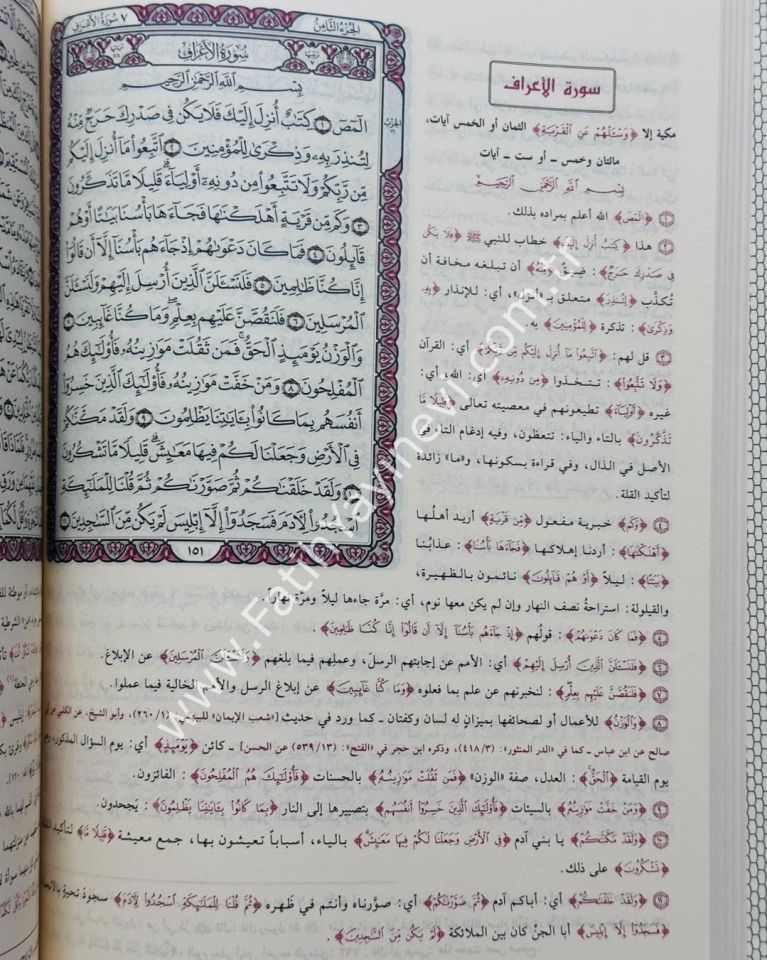 الجزء الثامن
٧ سورة الأعراف
سُورَةُ الأَعْرَافِ
بِسْمِ اللَّهِ الرَّحْمَٰنِ الرَّحِيمِ
الٓمٓصٓ ١ كِتَٰبٌ أُنزِلَ إِلَيْكَ فَلَا يَكُن فِى صَدْرِكَ حَرَجٌ مِّنْهُ
لِتُنذِرَ بِهِۦ وَذِكْرَىٰ لِلْمُؤْمِنِينَ ٢ ٱتَّبِعُوا۟ مَآ أُنزِلَ إِلَيْكُم
مِّن رَّبِّكُمْ وَلَا تَتَّبِعُوا۟ مِن دُونِهِۦٓ أَوْلِيَآءَ قَلِيلًا مَّا تَذَكَّرُونَ
٣ وَكَم مِّن قَرْيَةٍ أَهْلَكْنَٰهَا فَجَآءَهَا بَأْسُنَا بَيَٰتًا أَوْ هُمْ
قَآئِلُونَ ٤ فَمَا كَانَ دَعْوَىٰهُمْ إِذْ جَآءَهُم بَأْسُنَآ إِلَّآ أَن قَالُوٓا۟
إِنَّا كُنَّا ظَٰلِمِينَ ٥ فَلَنَسْـَٔلَنَّ ٱلَّذِينَ أُرْسِلَ إِلَيْهِمْ وَلَنَسْـَٔلَنَّ
ٱلْمُرْسَلِينَ ٦ فَلَنَقُصَّنَّ عَلَيْهِم بِعِلْمٍ وَمَا كُنَّا غَآئِبِينَ ٧
وَٱلْوَزْنُ يَوْمَئِذٍ ٱلْحَقُّ فَمَن ثَقُلَتْ مَوَٰزِينُهُۥ فَأُو۟لَٰٓئِكَ هُمُ
ٱلْمُفْلِحُونَ ٨ وَمَنْ خَفَّتْ مَوَٰزِينُهُۥ فَأُو۟لَٰٓئِكَ ٱلَّذِينَ خَسِرُوٓا۟
أَنفُسَهُم بِمَا كَانُوا۟ بِـَٔايَٰتِنَا يَظْلِمُونَ ٩ وَلَقَدْ مَكَّنَّٰكُمْ
فِى ٱلْأَرْضِ وَجَعَلْنَا لَكُمْ فِيهَا مَعَٰيِشَ قَلِيلًا مَّا تَشْكُرُونَ
١٠ وَلَقَدْ خَلَقْنَٰكُمْ ثُمَّ صَوَّرْنَٰكُمْ ثُمَّ قُلْنَا لِلْمَلَٰٓئِكَةِ
ٱسْجُدُوا۟ لِـَٔادَمَ فَسَجَدُوٓا۟ إِلَّآ إِبْلِيسَ لَمْ يَكُن مِّنَ ٱلسَّٰجِدِينَ ١١
١٥١
سورة الأعراف
مكية إلا ﴿وَسْئَلْهُمْ عَنِ الْقَرْيَةِ﴾ الثمان أو الخمس آيات،
مائتان وخمس ـ أو ست ـ آيات
بِسْمِ اللَّهِ الرَّحْمَٰنِ الرَّحِيمِ
١ ﴿الٓمٓصٓ﴾ الله أعلم بمراده بذلك.
٢ هذا ﴿كِتَٰبٌ أُنزِلَ إِلَيْكَ﴾ خطاب للنبي ﷺ ﴿فَلَا يَكُن
فِي صَدْرِكَ حَرَجٌ﴾: ضيق ﴿مِّنْهُ﴾ أن تبلغه مخافة أن
تُكذَّب ﴿لِتُنذِرَ﴾ متعلق بـ«أُنزل»، أي: للإنذار ﴿بِهِ
وَذِكْرَىٰ﴾: تذكرة ﴿لِلْمُؤْمِنِينَ﴾ به.
٣ قل لهم: ﴿اتَّبِعُوا مَا أُنزِلَ إِلَيْكُم مِّن رَّبِّكُمْ﴾ أي: القرآن
﴿وَلَا تَتَّبِعُوا﴾: تتخذوا ﴿مِن دُونِهِ﴾ أي: الله، أي:
غيره ﴿أَوْلِيَاءَ﴾ تطيعونهم في معصيته تعالى ﴿قَلِيلًا مَّا
تَذَكَّرُونَ﴾ بالتاء والياء: تتعظون، وفيه إدغام التاء في
الأصل في الذال، وفي قراءة بسكونها، و«ما» زائدة
لتأكيد القلة.
٤ ﴿وَكَم﴾ خبرية مفعول ﴿مِّن قَرْيَةٍ﴾ أريد أهلُها
﴿أَهْلَكْنَٰهَا﴾: أردنا إهلاكها ﴿فَجَاءَهَا بَأْسُنَا﴾: عذابُنا
﴿بَيَٰتًا﴾: ليلاً ﴿أَوْ هُمْ قَائِلُونَ﴾ نائمون بالظهيرة،
والقيلولة: استراحةُ نصف النهار وإن لم يكن معها نوم، أي: مرَّة جاءها ليلاً ومرَّة نهاراً.
٥ ﴿فَمَا كَانَ دَعْوَىٰهُمْ﴾: قولُهم ﴿إِذْ جَاءَهُم بَأْسُنَا إِلَّا أَن قَالُوا إِنَّا كُنَّا ظَٰلِمِينَ﴾.
٦ ﴿فَلَنَسْئَلَنَّ الَّذِينَ أُرْسِلَ إِلَيْهِمْ﴾ أي: الأمم عن إجابتهم الرسلَ، وعملِهم فيما بلغهم ﴿وَلَنَسْئَلَنَّ الْمُرْسَلِينَ﴾ عن الإبلاغ.
٧ ﴿فَلَنَقُصَّنَّ عَلَيْهِم بِعِلْمٍ﴾: لنخبرنهم عن علم بما فعلوه ﴿وَمَا كُنَّا غَائِبِينَ﴾ عن إبلاغ الرسل والأمم الخالية فيما عملوا.
٨ ﴿وَالْوَزْنُ﴾ للأعمال أو لصحائفها بميزانٍ له لسان وكفتان ـ كما ورد في حديث [«شعب الإيمان» للبيهقي: (١/ ٢٦٠)، وأبو الشيخ، عن الكلبي عن أبي
صالح عن ابن عباس ـ كما في «الدر المنثور»: (٣/ ٤١٨)، وذكره ابن حجر في «الفتح»: (١٣/ ٥٣٩) عن الحسن] ـ كائن ﴿يَوْمَئِذٍ﴾ أي: يوم السؤال المذكور، وهو
يوم القيامة ﴿الْحَقُّ﴾: العدل، صفة «الوزن» ﴿فَمَن ثَقُلَتْ مَوَٰزِينُهُ﴾ بالحسنات ﴿فَأُولَٰئِكَ هُمُ الْمُفْلِحُونَ﴾: الفائزون.
٩ ﴿وَمَنْ خَفَّتْ مَوَٰزِينُهُ﴾ بالسيئات ﴿فَأُولَٰئِكَ الَّذِينَ خَسِرُوا أَنفُسَهُم﴾ بتصييرها إلى النار ﴿بِمَا كَانُوا بِآيَٰتِنَا يَظْلِمُونَ﴾: يجحدون.
١٠ ﴿وَلَقَدْ مَكَّنَّٰكُمْ﴾ يا بني آدم ﴿فِي الْأَرْضِ وَجَعَلْنَا لَكُمْ فِيهَا مَعَٰيِشَ﴾ بالياء، أسباباً تعيشون بها، جمع معيشة ﴿قَلِيلًا مَّا﴾ لتأكيد القلة
﴿تَشْكُرُونَ﴾ على ذلك.
١١ ﴿وَلَقَدْ خَلَقْنَٰكُمْ﴾ أي: أباكم آدم ﴿ثُمَّ صَوَّرْنَٰكُمْ﴾ أي: صوَّرناه وأنتم في ظهره ﴿ثُمَّ قُلْنَا لِلْمَلَٰئِكَةِ اسْجُدُوا لِآدَمَ﴾ سجودَ تحيةٍ بالانحناء
﴿فَسَجَدُوا إِلَّا إِبْلِيسَ﴾ أبا الجنِّ كان بين الملائكة ﴿لَمْ يَكُن مِّنَ السَّٰجِدِينَ﴾.
www.Fatihyayinevi.com.tr